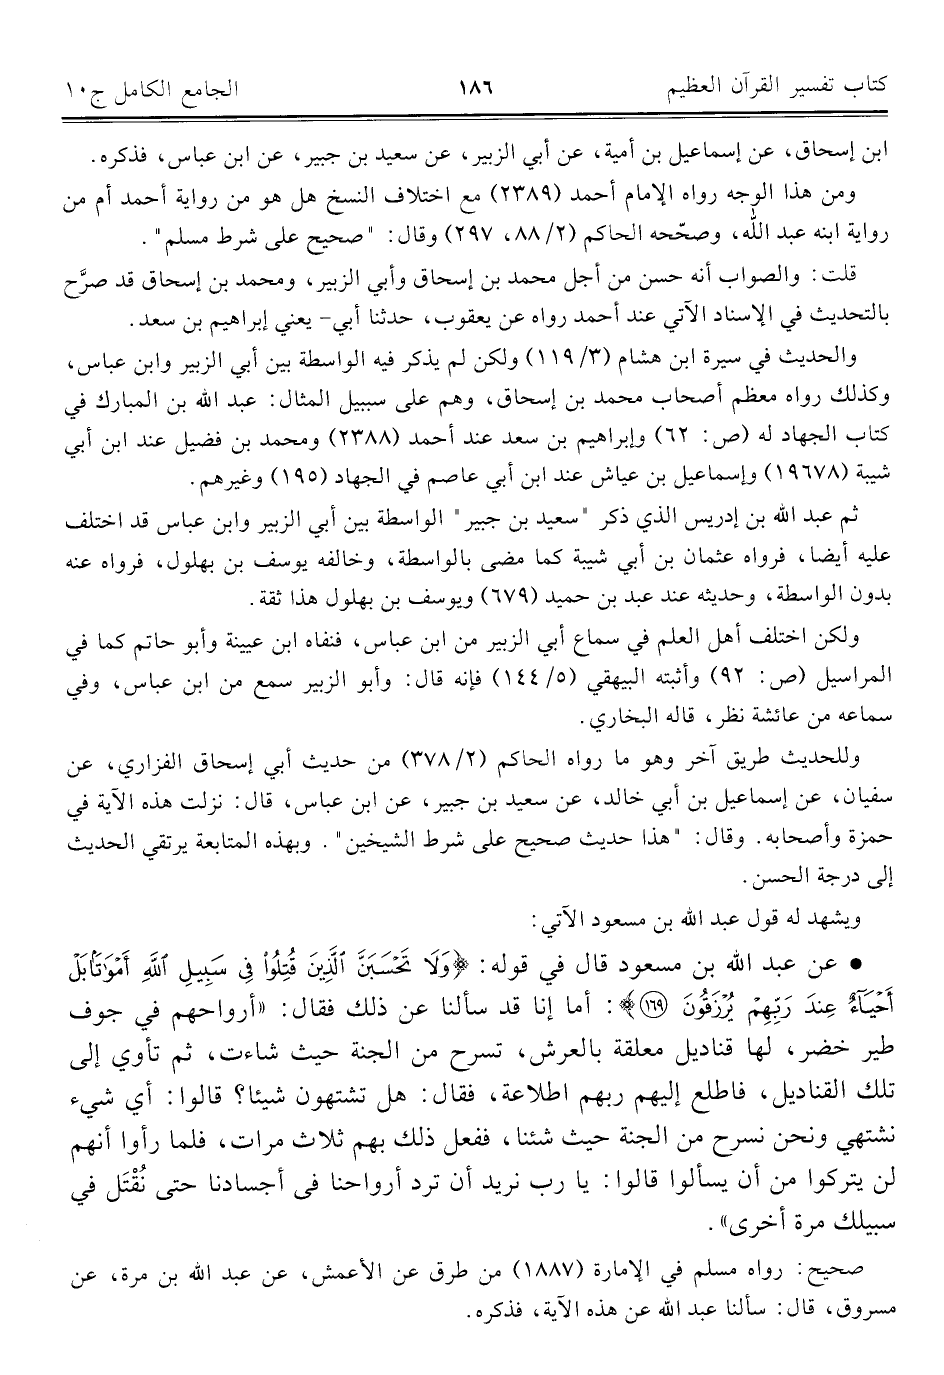 كتاب تفسير القرآن العظيم ١٨٦ الجامع الكامل ج١٠
ابن إسحاق، عن إسماعيل بن أمية، عن أبي الزبير، عن سعيد بن جبير، عن ابن عباس، فذكره.
ومن هذا الوجه رواه الإمام أحمد (٢٣٨٩) مع اختلاف النسخ هل هو من رواية أحمد أم من
رواية ابنه عبد الله، وصحّحه الحاكم (٢/ ٨٨، ٢٩٧) وقال: "صحيح على شرط مسلم".
قلت: والصواب أنه حسن من أجل محمد بن إسحاق وأبي الزبير، ومحمد بن إسحاق قد صرَّح
بالتحديث في الإسناد الآتي عند أحمد رواه عن يعقوب، حدثنا أبي- يعني إبراهيم بن سعد.
والحديث في سيرة ابن هشام (٣/ ١١٩) ولكن لم يذكر فيه الواسطة بين أبي الزبير وابن عباس،
وكذلك رواه معظم أصحاب محمد بن إسحاق، وهم على سبيل المثال: عبد الله بن المبارك في
كتاب الجهاد له (ص: ٦٢) وإبراهيم بن سعد عند أحمد (٢٣٨٨) ومحمد بن فضيل عند ابن أبي
شيبة (١٩٦٧٨) وإسماعيل بن عياش عند ابن أبي عاصم في الجهاد (١٩٥) وغيرهم.
ثم عبد الله بن إدريس الذي ذكر "سعيد بن جبير" الواسطة بين أبي الزبير وابن عباس قد اختلف
عليه أيضا، فرواه عثمان بن أبي شيبة كما مضى بالواسطة، وخالفه يوسف بن بهلول، فرواه عنه
بدون الواسطة، وحديثه عند عبد بن حميد (٦٧٩) ويوسف بن بهلول هذا ثقة.
ولكن اختلف أهل العلم في سماع أبي الزبير من ابن عباس، فنفاه ابن عيينة وأبو حاتم كما في
المراسيل (ص: ٩٢) وأثبته البيهقي (٥/ ١٤٤) فإنه قال: وأبو الزبير سمع من ابن عباس، وفي
سماعه من عائشة نظر، قاله البخاري.
وللحديث طريق آخر وهو ما رواه الحاكم (٢/ ٣٧٨) من حديث أبي إسحاق الفزاري، عن
سفيان، عن إسماعيل بن أبي خالد، عن سعيد بن جبير، عن ابن عباس، قال: نزلت هذه الآية في
حمزة وأصحابه. وقال: "هذا حديث صحيح على شرط الشيخين". وبهذه المتابعة يرتقي الحديث
إلى درجة الحسن.
ويشهد له قول عبد الله بن مسعود الآتي:
• عن عبد الله بن مسعود قال في قوله: ﴿وَلَا تَحْسَبَنَّ ٱلَّذِينَ قُتِلُوا۟ فِى سَبِيلِ ٱللَّهِ أَمْوَٰتًۢا بَلْ
أَحْيَآءٌ عِندَ رَبِّهِمْ يُرْزَقُونَ ١٦٩﴾: أما إنا قد سألنا عن ذلك فقال: «أرواحهم في جوف
طير خضر، لها قناديل معلقة بالعرش، تسرح من الجنة حيث شاءت، ثم تأوي إلى
تلك القناديل، فاطلع إليهم ربهم اطلاعة، فقال: هل تشتهون شيئا؟ قالوا: أي شيء
نشتهي ونحن نسرح من الجنة حيث شئنا، ففعل ذلك بهم ثلاث مرات، فلما رأوا أنهم
لن يتركوا من أن يسألوا قالوا: يا رب نريد أن ترد أرواحنا في أجسادنا حتى نُقْتَل في
سبيلك مرة أخرى».
صحيح: رواه مسلم في الإمارة (١٨٨٧) من طرق عن الأعمش، عن عبد الله بن مرة، عن
مسروق، قال: سألنا عبد الله عن هذه الآية، فذكره.